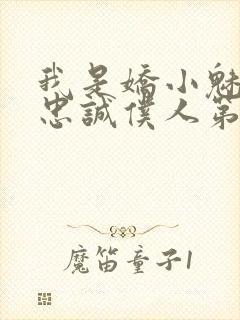 我是嬌小魅
忠誠僕人第
魔笛童子1